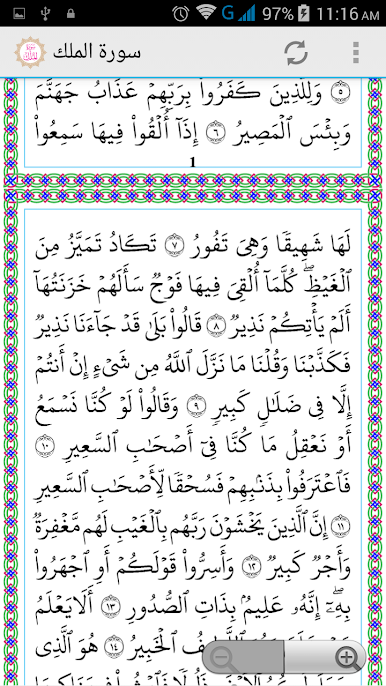 G 97% 11:16 AM
سورة الملك
٥ وَلِلَّذِينَ كَفَرُوا۟ بِرَبِّهِمْ عَذَابُ جَهَنَّمَ
وَبِئْسَ ٱلْمَصِيرُ ٦ إِذَآ أُلْقُوا۟ فِيهَا سَمِعُوا۟
1
لَهَا شَهِيقًا وَهِىَ تَفُورُ ٧ تَكَادُ تَمَيَّزُ مِنَ
ٱلْغَيْظِۖ كُلَّمَآ أُلْقِىَ فِيهَا فَوْجٌ سَأَلَهُمْ خَزَنَتُهَآ
أَلَمْ يَأْتِكُمْ نَذِيرٌ ٨ قَالُوا۟ بَلَىٰ قَدْ جَآءَنَا نَذِيرٌ
فَكَذَّبْنَا وَقُلْنَا مَا نَزَّلَ ٱللَّهُ مِن شَىْءٍ إِنْ أَنتُمْ
إِلَّا فِى ضَلَـٰلٍ كَبِيرٍ ٩ وَقَالُوا۟ لَوْ كُنَّا نَسْمَعُ
أَوْ نَعْقِلُ مَا كُنَّا فِىٓ أَصْحَـٰبِ ٱلسَّعِيرِ ١٠
فَٱعْتَرَفُوا۟ بِذَنۢبِهِمْ فَسُحْقًا لِّأَصْحَـٰبِ ٱلسَّعِيرِ
١١ إِنَّ ٱلَّذِينَ يَخْشَوْنَ رَبَّهُم بِٱلْغَيْبِ لَهُم مَّغْفِرَةٌ
وَأَجْرٌ كَبِيرٌ ١٢ وَأَسِرُّوا۟ قَوْلَكُمْ أَوِ ٱجْهَرُوا۟
بِهِۦٓۖ إِنَّهُۥ عَلِيمٌۢ بِذَاتِ ٱلصُّدُورِ ١٣ أَلَا يَعْلَمُ
ٱلْخَبِيرُ ١٤ هُوَ ٱلَّذِى